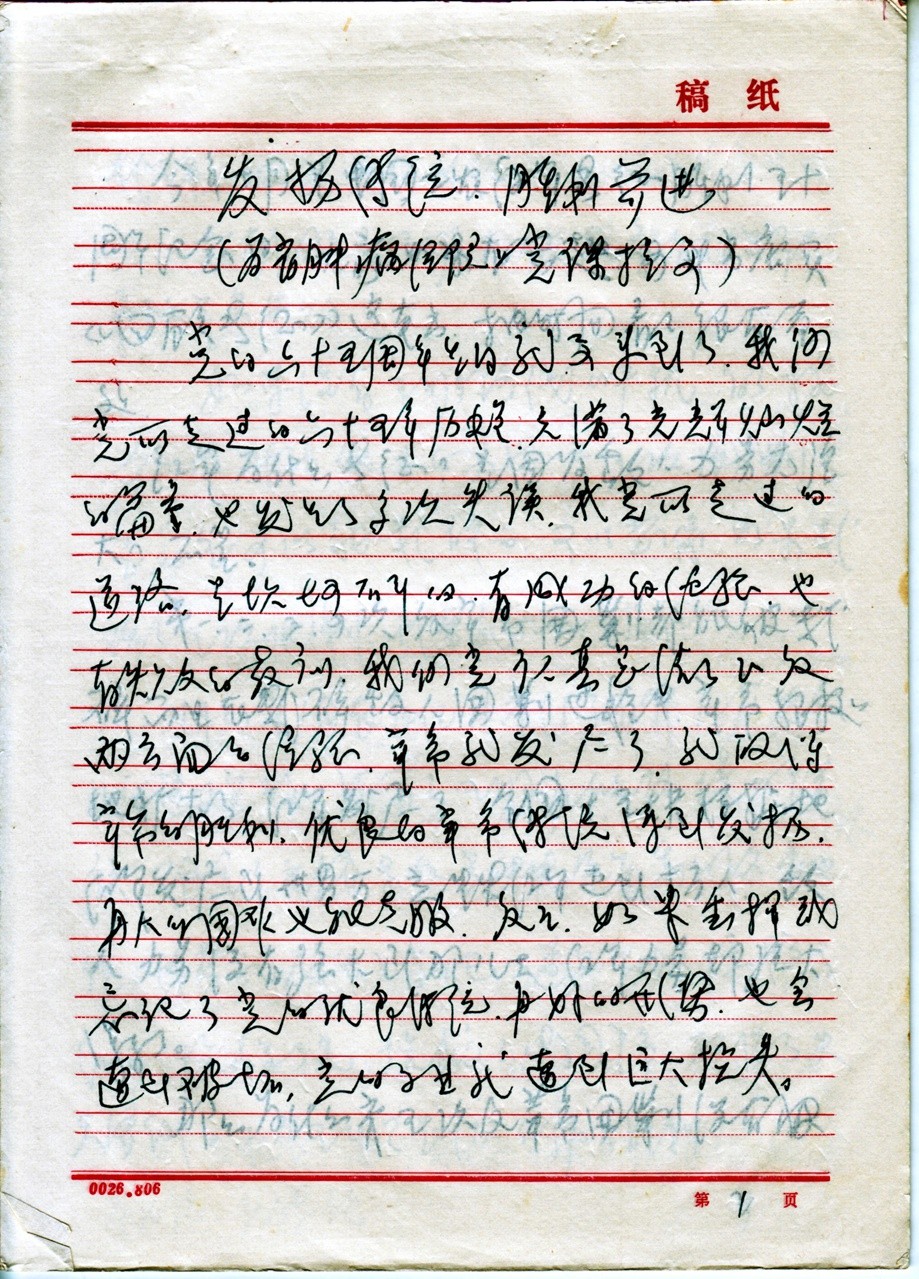 稿 纸
发扬传统、胜利前进
(为省肿瘤医院上党课提文)
党的六十五周年生日就要来到了。我们
党所走过的六十五年历程,充满了光辉灿烂
的篇章,也发生了多次失误。我党所走过的
道路,是坎坷不平的,有成功的经验,也
有失败的教训。我们党认真总结了正反
两方面的经验,革命就发展了,就取得
革命的胜利,优良的革命传统得到发扬,
再大的困难也能克服。反之,如果丢掉或
忘记了党的优良传统,再好的形势,也会
遭到破坏,党的事业就遭到巨大损失。
0026.806
第 1 页